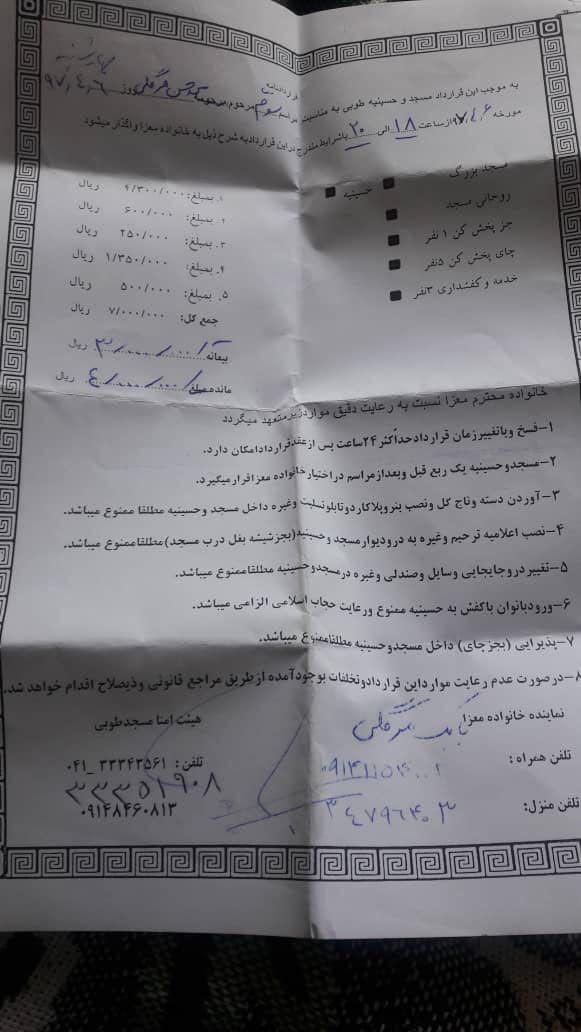 قرارداد
به موجب این قرارداد مسجد و حسینیه طوبی به مناسبت مراسم سوم مرحوم، مرحومه روز چهارشنبه ۹۷,۴,۶
مورخه ۹۷,۴,۶ از ساعت ۱۸ الی ۲۰ با شرایط مندرج در این قرارداد به شرح ذیل به خانواده معزا واگذار میشود
مسجد بزرگ حسینیه ۱. بمبلغ: ۴/۳۰۰/۰۰۰ ریال
روحانی مسجد ۲. بمبلغ: ۶۰۰/۰۰۰ ریال
جز پخش کن ۱ نفر ۳. بمبلغ: ۲۵۰/۰۰۰ ریال
چای پخش کن ۵نفر ۴. بمبلغ: ۱/۳۵۰/۰۰۰ ریال
خدمه و کفشداری ۳نفر ۵. بمبلغ: ۵۰۰/۰۰۰ ریال
جمع کل: ۷/۰۰۰/۰۰۰ ریال
بیعانه ۳/۰۰۰/۰۰۰ ریال
مانده مبلغ ۴/۰۰۰/۰۰۰ ریال
خانواده محترم معزا نسبت به رعایت دقیق موارد زیر متعهد میگردد
۱-فسخ ویاتغییرزمان قراردادحداکثر ۲۴ساعت پس ازعقدقراردادامکان دارد.
۲-مسجدوحسینیه یک ربع قبل وبعدازمراسم دراختیارخانواده معزاقرارمیگیرد.
۳-آوردن دسته وتاج گل ونصب بنروپلاکاردوتابلوتسلیت وغیره داخل مسجد وحسینیه مطلقا ممنوع میباشد.
۴-نصب اعلامیه ترحیم وغیره به درودیوارمسجد وحسینیه(بجزشیشه بغل درب مسجد)مطلقاممنوع میباشد.
۵-تغییردروجابجایی وسایل وصندلی وغیره درمسجدوحسینیه مطلقاممنوع میباشد.
۶-ورودبانوان باکفش به حسینیه ممنوع ورعایت حجاب اسلامی الزامی میباشد.
۷-پذیرایی (بجزچای) داخل مسجدوحسینیه مطلقاممنوع میباشد.
۸-درصورت عدم رعایت موارداین قراردادوتخلفات بوجودآمده ازطریق مراجع قانونی وذیصلاح اقدام خواهد شد.
نماینده خانواده معزا هیئت امنا مسجدطوبی
تلفن همراه: تلفن: ۳۳۳۴۳۵۶۱ _۰۴۱
۳۳۳۵۲۹۰۸
تلفن منزل: ۳۴۷۹۶۴۰۳ ۰۹۱۴۸۴۶۰۸۱۳